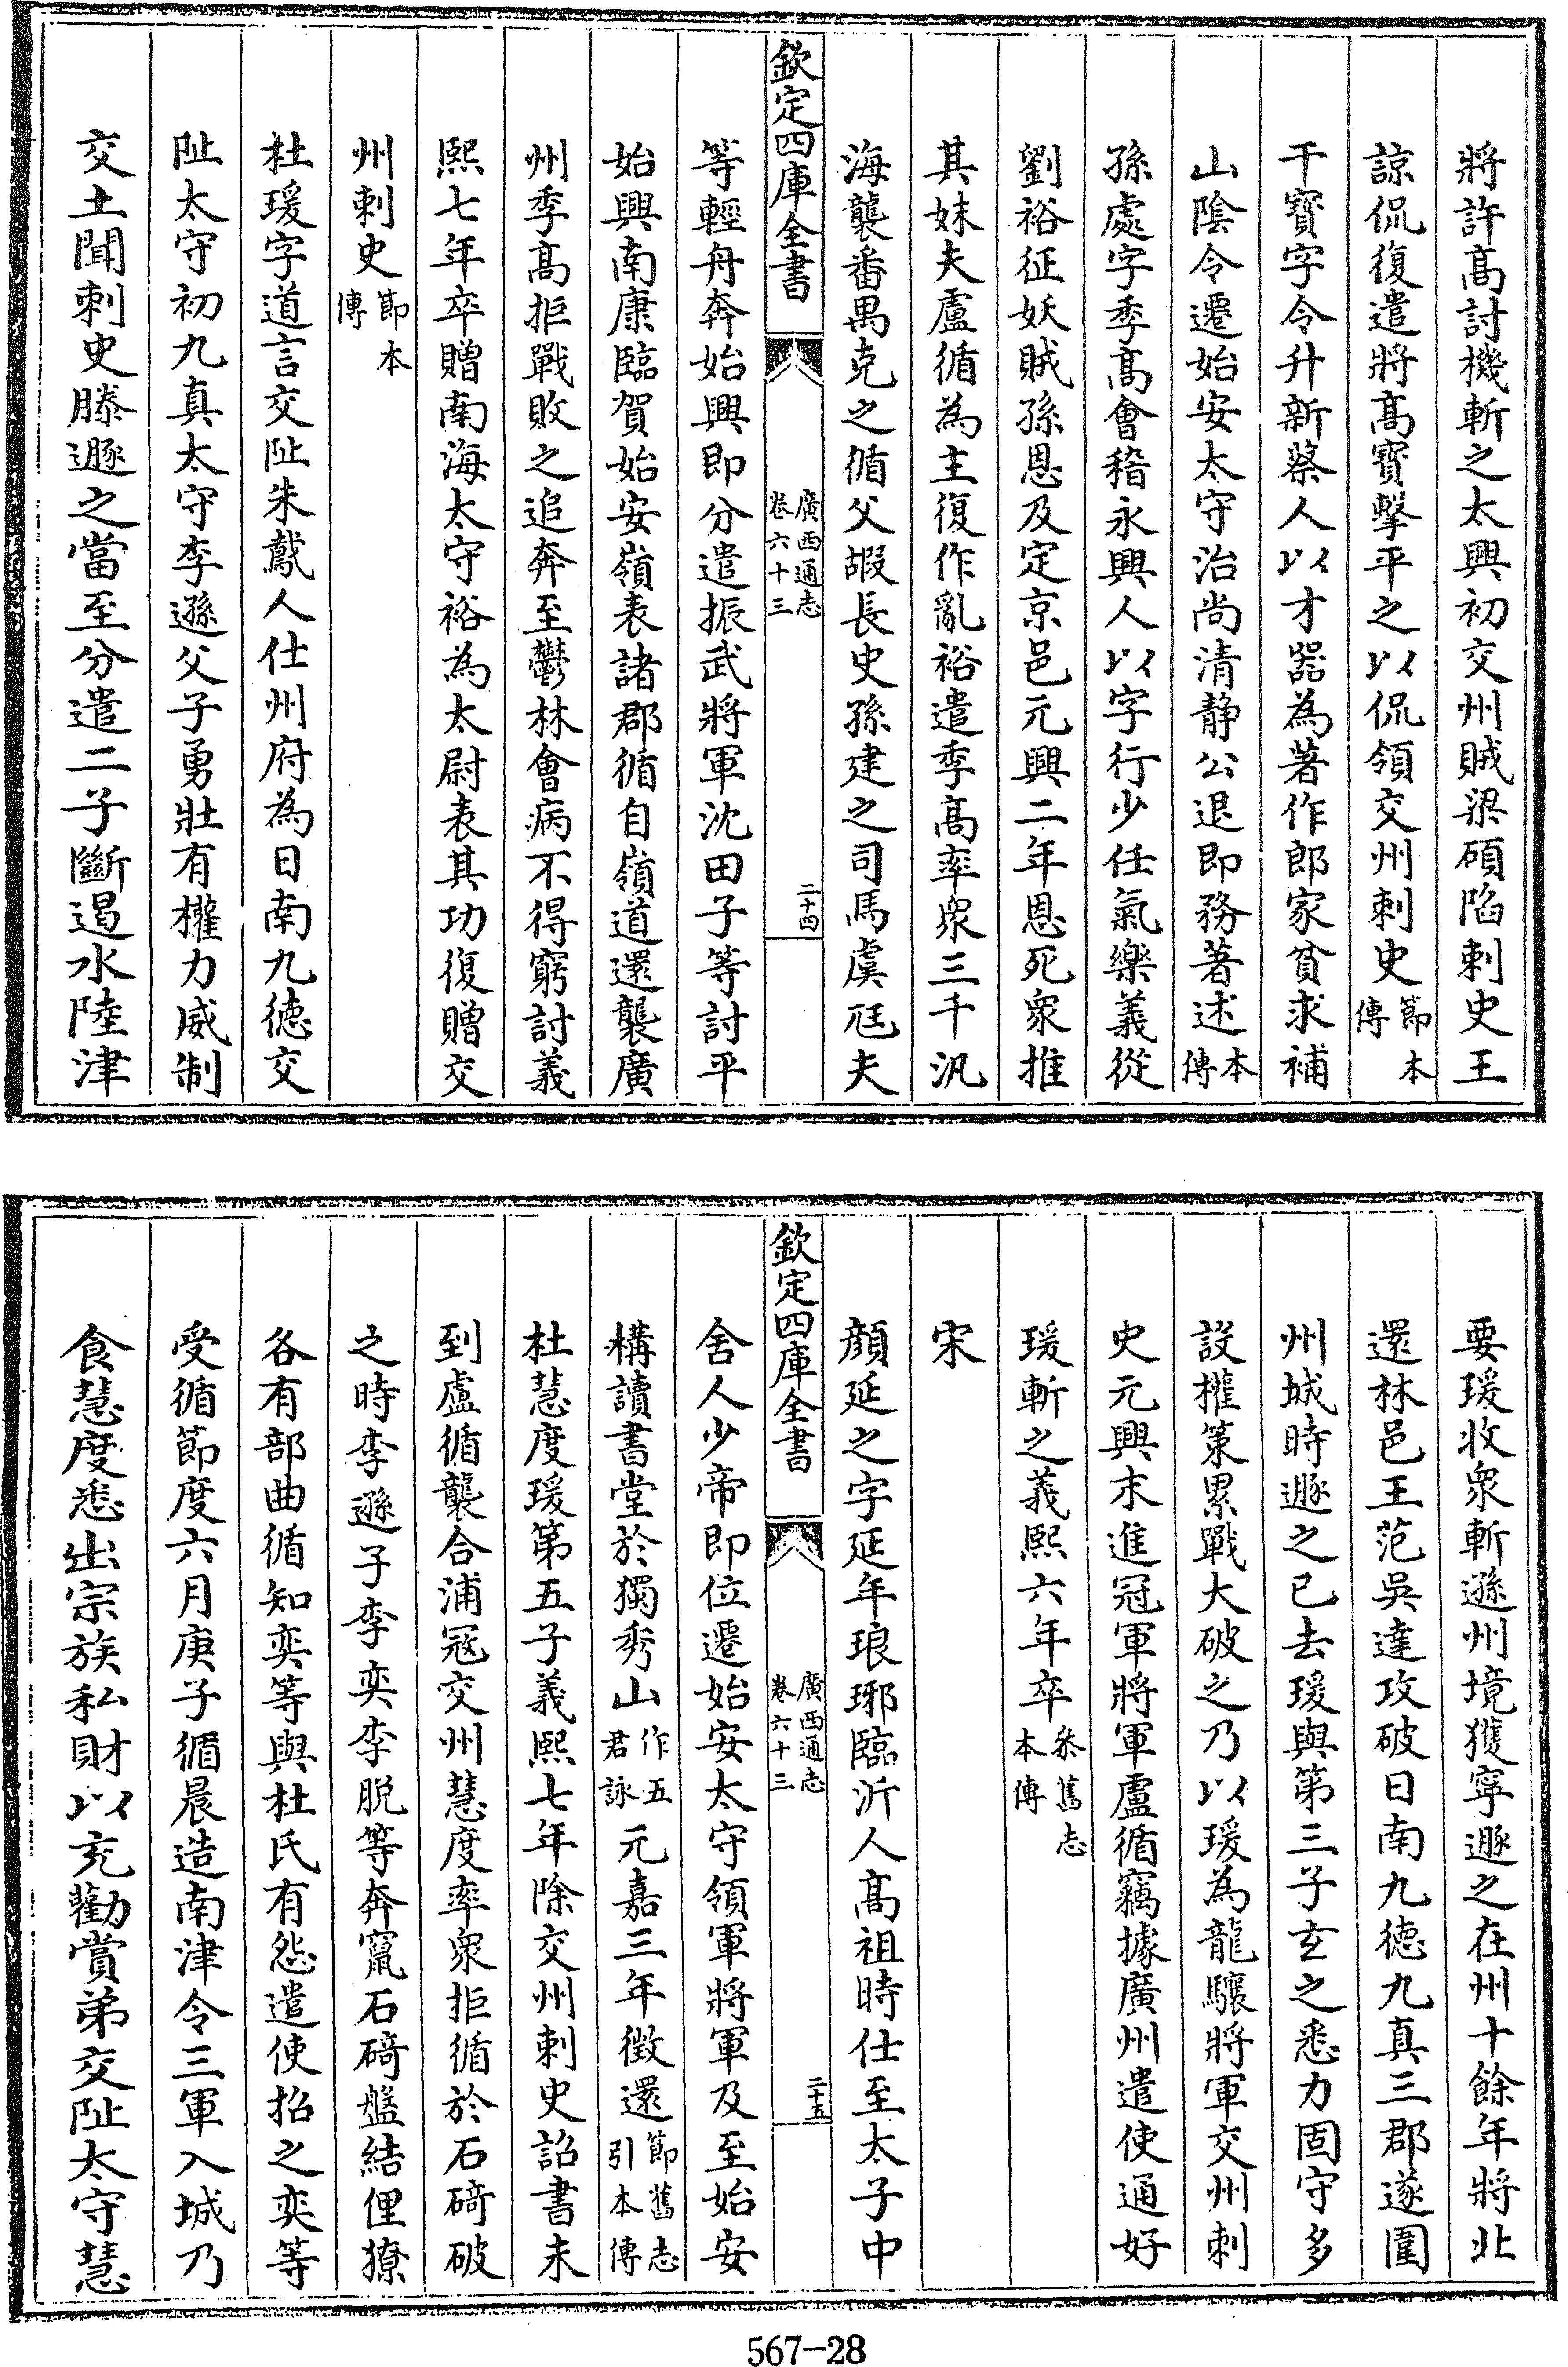 將許髙討機斬之太興初交州賊梁碩陷刺史王
諒侃復遣將髙寳擊平之以侃領交州刺史節本傳
干寳字令升新蔡人以才器為著作郎家貧求補
山隂令遷始安太守治尚清静公退即務著述本傳
孫處字季髙會稽永興人以字行少任氣樂義從
劉裕征妖賊孫恩及定京邑元興二年恩死衆推
其妹夫盧循為主復作亂裕遣季髙率衆三千汎
海襲番禺克之循父嘏長史孫建之司馬虞尫夫
欽定四庫全書
廣西通志
卷六十三
二十四
等輕舟奔始興即分遣振武將軍沈田子等討平
始興南康臨賀始安嶺表諸郡循自嶺道還襲廣
州季髙拒戰敗之追奔至鬱林會病不得窮討義
熙七年卒贈南海太守裕為太尉表其功復贈交
州刺史節本傳
杜瑗字道言交阯朱䳒人仕州府為日南九徳交
阯太守初九真太守李遜父子勇壯有權力威制
交土聞刺史滕遯之當至分遣二子斷遏水陸津
要瑗收衆斬遜州境獲寧遯之在州十餘年將北
還林邑王范吳達攻破日南九徳九真三郡遂圍
州城時遯之已去瑗與第三子𤣥之悉力固守多
設權策累戰大破之乃以瑗為龍驤將軍交州刺
史元興末進冠軍將軍盧循竊據廣州遣使通好
瑗斬之義熙六年卒叅舊志本傳
宋
顔延之字延年琅琊臨沂人髙祖時仕至太子中
欽定四庫全書
廣西通志
卷六十三
二十五
舍人少帝即位遷始安太守領軍將軍及至始安
構讀書堂於獨秀山作五君詠元嘉三年徴還節舊志引本傳
杜慧度瑗第五子義熙七年除交州刺史詔書未
到盧循襲合浦冦交州慧度率衆拒循於石碕破
之時李遜子李奕李脱等奔竄石碕盤結俚獠
各有部曲循知奕等與杜氏有怨遣使招之奕等
受循節度六月庚子循晨造南津令三軍入城乃
食慧度悉出宗族私財以充勸賞弟交阯太守慧
567-28